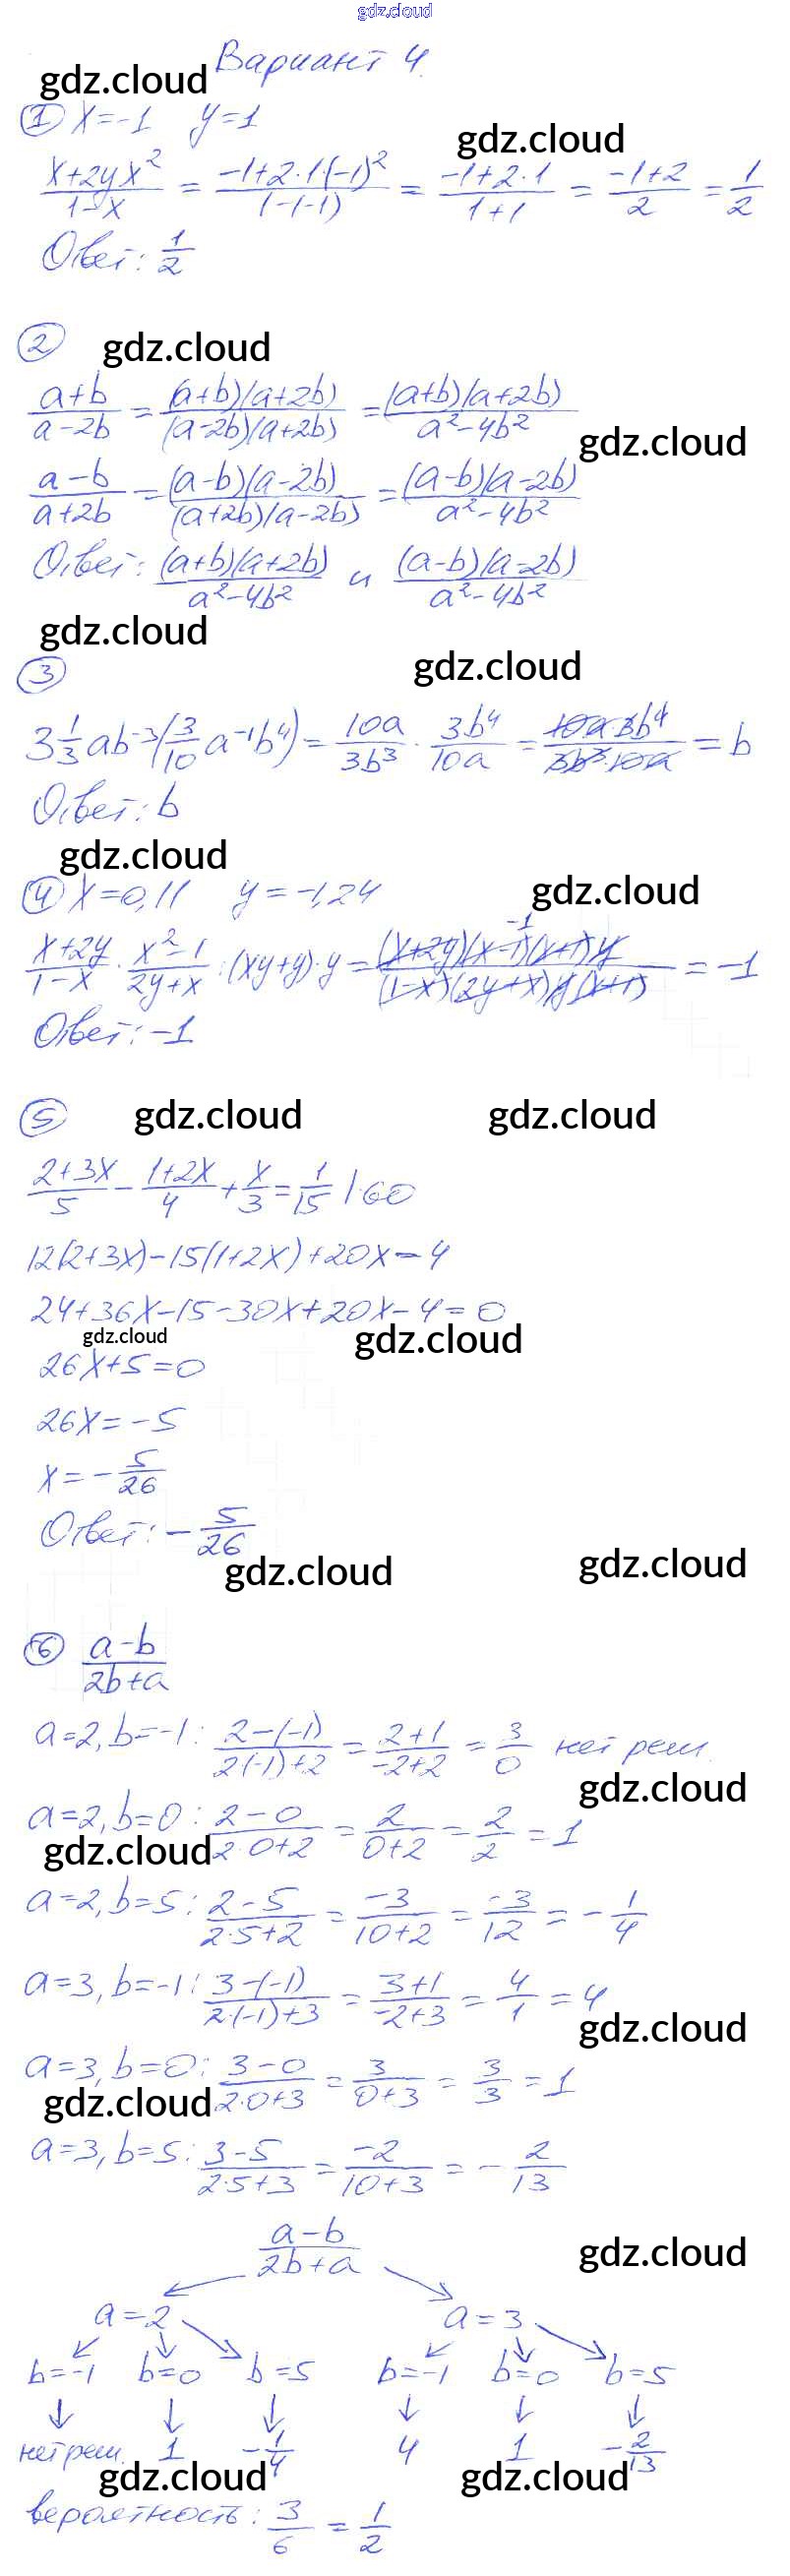 gdz.cloud
Вариант 4.
gdz.cloud
① x=-1 y=1
gdz.cloud
(x+2yx²)/(1-x) = (-1+2·1·(-1)²)/(1-(-1)) = (-1+2·1)/(1+1) = (-1+2)/2 = 1/2
Ответ: 1/2
② gdz.cloud
(a+b)/(a-2b) = (a+b)(a+2b)/(a-2b)(a+2b) = (a+b)(a+2b)/(a²-4b²)
gdz.cloud
(a-b)/(a+2b) = (a-b)(a-2b)/(a+2b)(a-2b) = (a-b)(a-2b)/(a²-4b²)
Ответ: (a+b)(a+2b)/(a²-4b²) и (a-b)(a-2b)/(a²-4b²)
gdz.cloud
③ gdz.cloud
3 1/3 ab⁻³(3/10 a⁻¹b⁴) = 10a/3b³ · 3b⁴/10a = 10a·3b⁴/3b³·10a = b
Ответ: b
gdz.cloud
④ x=0,11 y=-1,24 gdz.cloud
-1
(x+2y)/(1-x) · (x²-1)/(2y+x) : (xy+y)·y = (x+2y)(x-1)(x+1)y/(1-x)(2y+x)y(x+1) = -1
Ответ: -1
⑤ gdz.cloud gdz.cloud
(2+3x)/5 - (1+2x)/4 + x/3 = 1/15 |·60
12(2+3x)-15(1+2x)+20x=4
24+36x-15-30x+20x-4=0
gdz.cloud gdz.cloud
26x+5=0
26x=-5
x=-5/26
Ответ: -5/26
gdz.cloud gdz.cloud
⑥ (a-b)/(2b+a)
a=2, b=-1: (2-(-1))/(2(-1)+2) = (2+1)/(-2+2) = 3/0 нет реш.
gdz.cloud
a=2, b=0: (2-0)/(2·0+2) = 2/(0+2) = 2/2 = 1
gdz.cloud
a=2, b=5: (2-5)/(2·5+2) = -3/(10+2) = -3/12 = -1/4
a=3, b=-1: (3-(-1))/(2·(-1)+3) = (3+1)/(-2+3) = 4/1 = 4
gdz.cloud
a=3, b=0: (3-0)/(2·0+3) = 3/(0+3) = 3/3 = 1
gdz.cloud
a=3, b=5: (3-5)/(2·5+3) = -2/(10+3) = -2/13
(a-b)/(2b+a)
gdz.cloud
a=2 a=3
b=-1 b=0 b=5 b=-1 b=0 b=5
нет реш. 1 -1/4 4 1 -2/13
gdz.cloud gdz.cloud
вероятность: 3/6 = 1/2